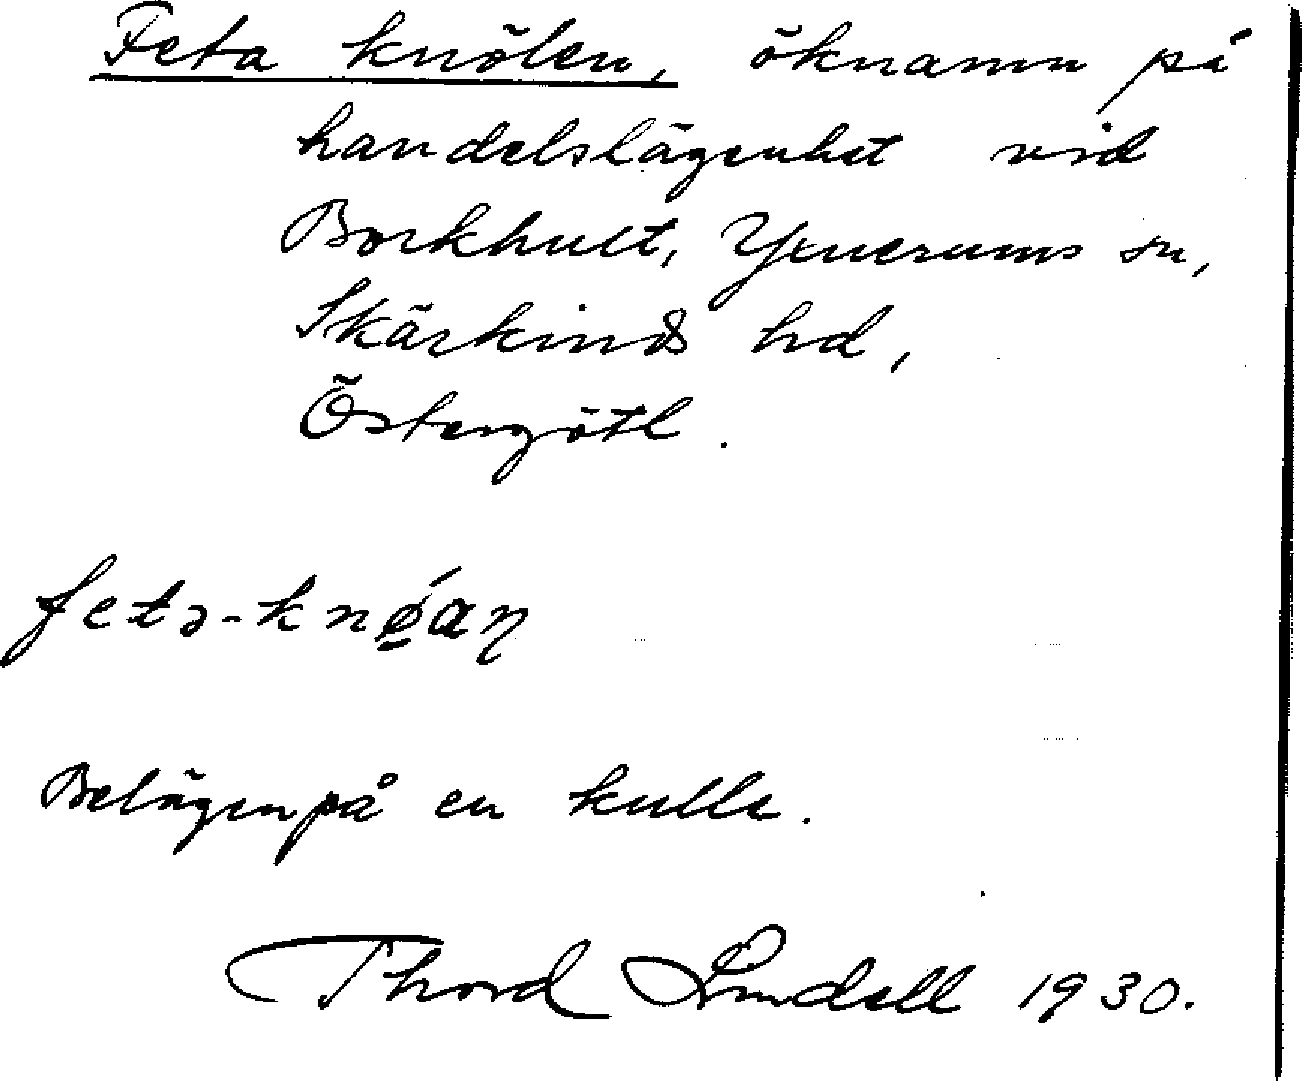 Feta knölen, öknamn på
handelslägenhet vid
Borkhult, Yxnerums sn,
Skärkinds hd,
Östergötl.
Belägen på en kulle.
Thord Lindell 1930.